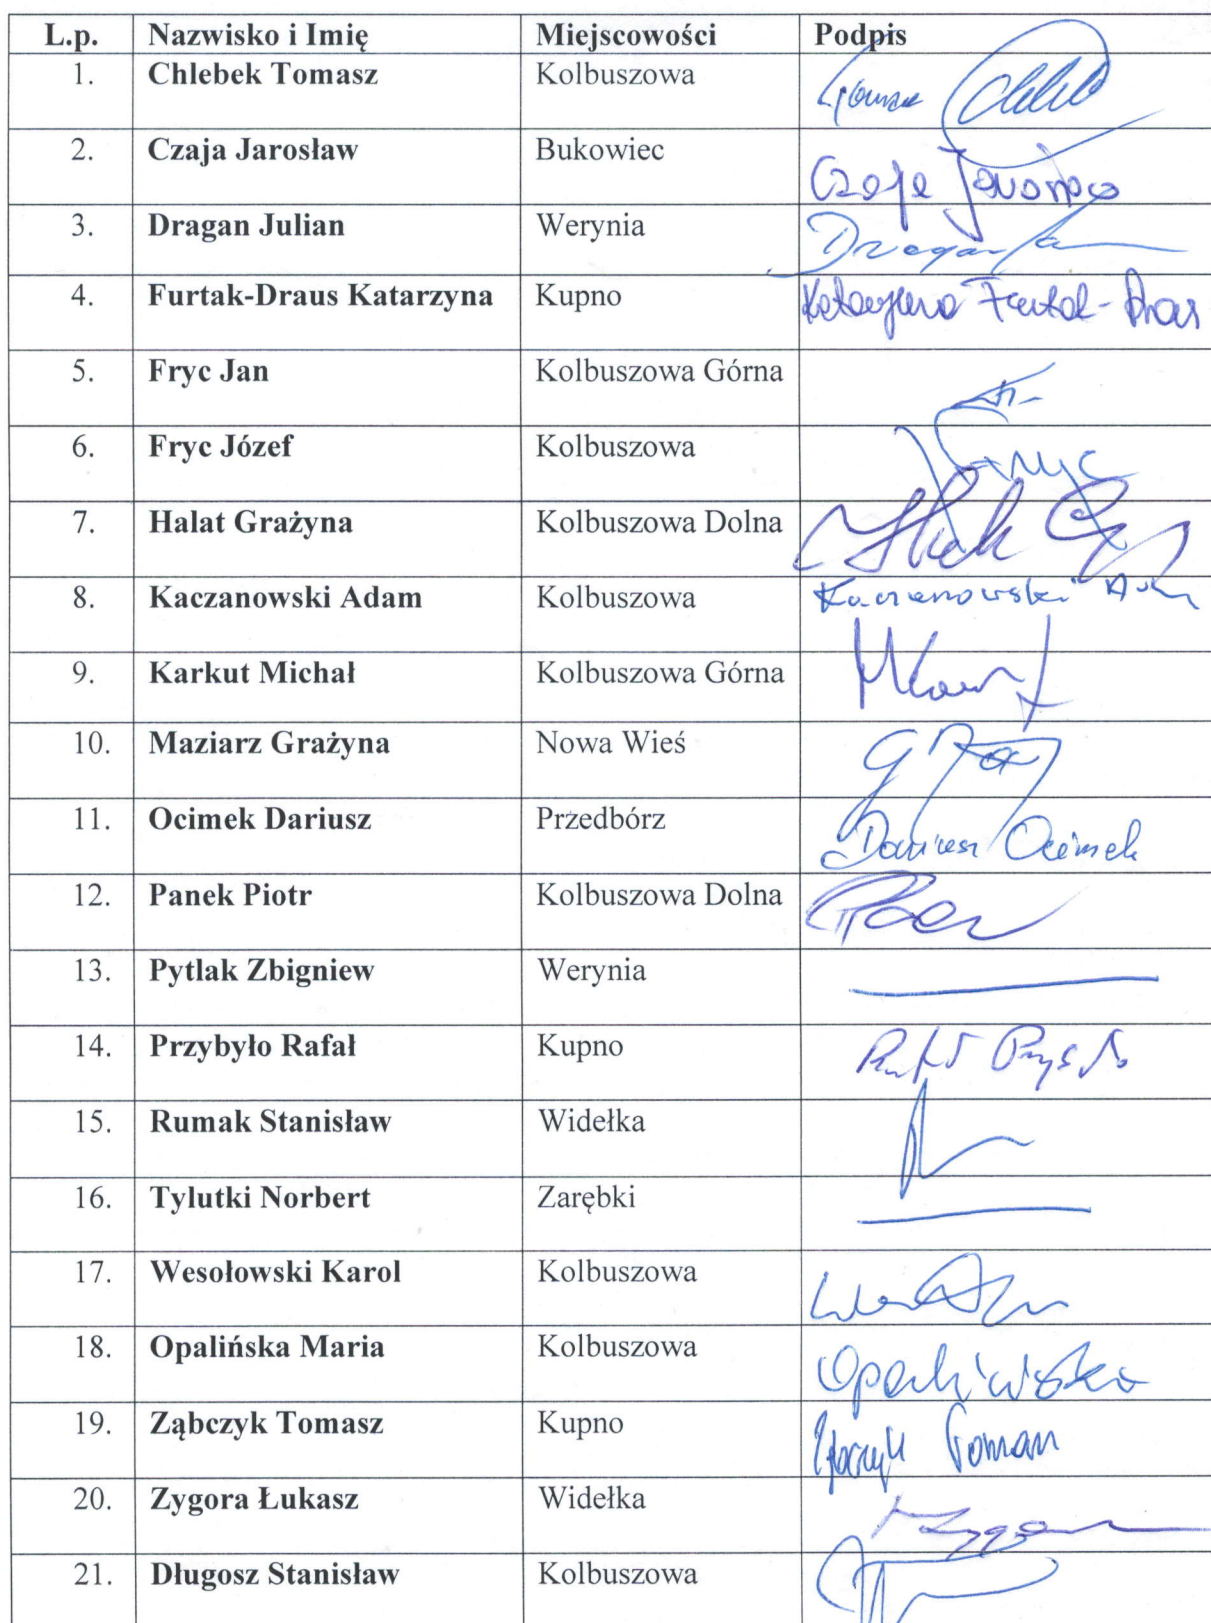 L.p. Nazwisko i Imię Miejscowości Podpis
1. Chlebek Tomasz Kolbuszowa
2. Czaja Jarosław Bukowiec Czaja Jarosław
3. Dragan Julian Werynia Dragan
4. Furtak-Draus Katarzyna Kupno Katarzyna Furtak-Draus
5. Fryc Jan Kolbuszowa Górna
6. Fryc Józef Kolbuszowa Fryc
7. Halat Grażyna Kolbuszowa Dolna
8. Kaczanowski Adam Kolbuszowa Kaczanowski Adam
9. Karkut Michał Kolbuszowa Górna
10. Maziarz Grażyna Nowa Wieś
11. Ocimek Dariusz Przedbórz Dariusz Ocimek
12. Panek Piotr Kolbuszowa Dolna
13. Pytlak Zbigniew Werynia
14. Przybyło Rafał Kupno
15. Rumak Stanisław Widełka
16. Tylutki Norbert Zarębki
17. Wesołowski Karol Kolbuszowa
18. Opalińska Maria Kolbuszowa Opalińska
19. Ząbczyk Tomasz Kupno
20. Zygora Łukasz Widełka
21. Długosz Stanisław Kolbuszowa